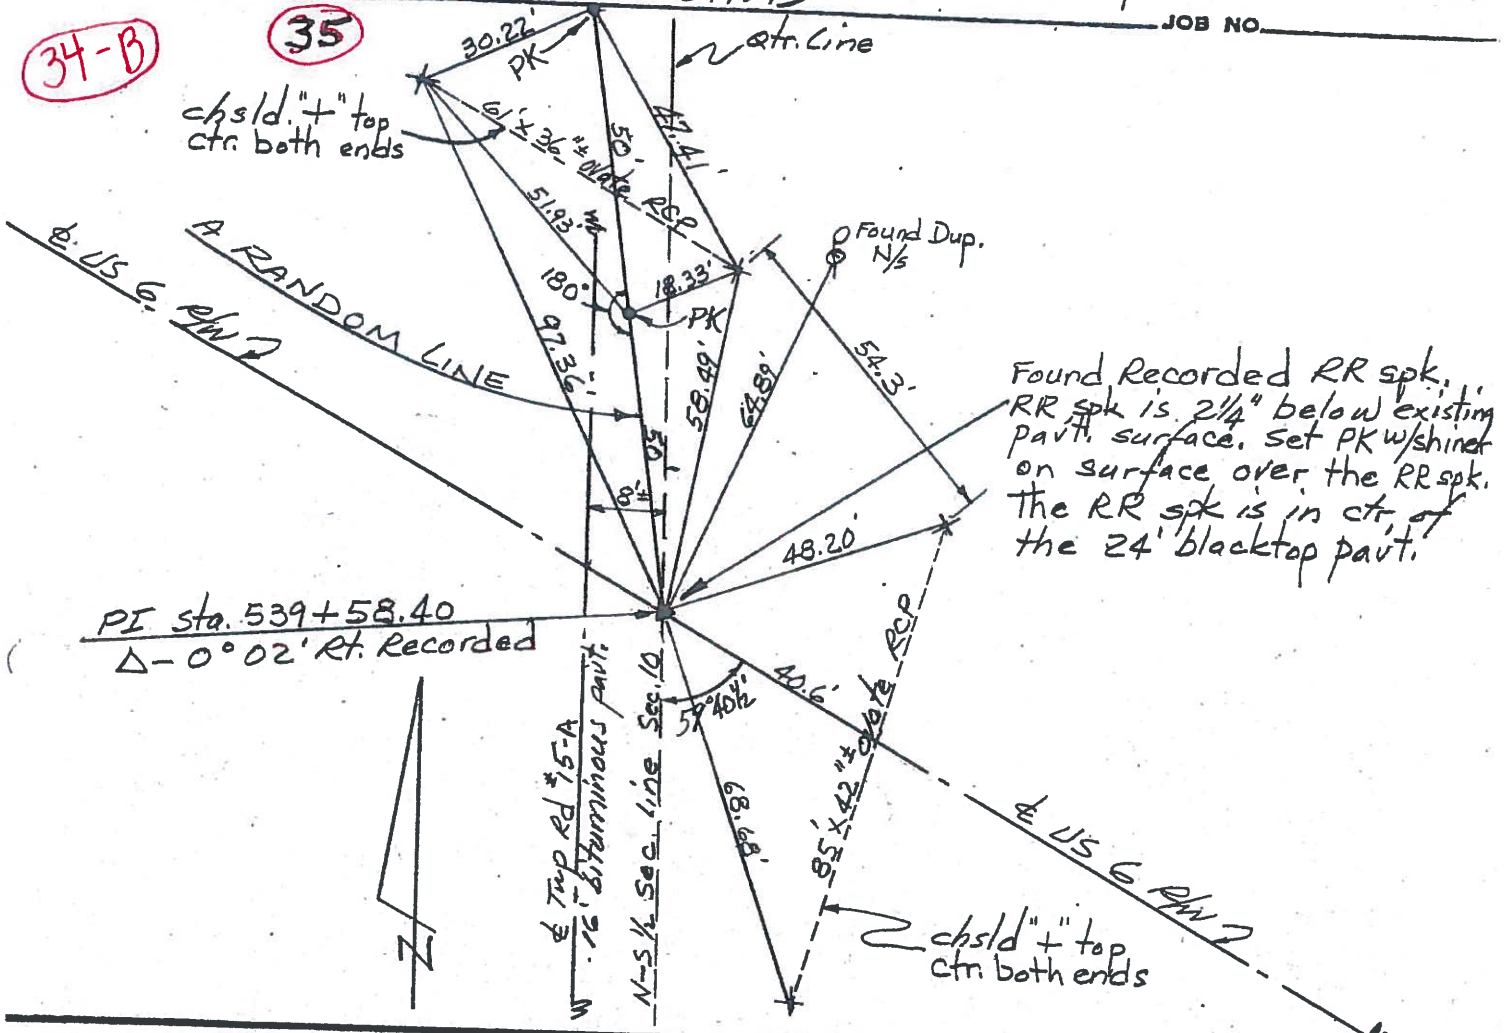 34-B
35
JOB NO.
30.22'
PK
Qtr. Line
chsld. "+" top
ctr. both ends
61' x 36"± Ovate RCP
50'
47.41'
51.93'
Found Dup.
N/s
℄ US 6 R/W
A RANDOM LINE
180°
18.33'
PK
97.36'
58.49'
64.89'
54.3'
50'
Found Recorded RR spk.
RR spk is 2¼" below existing
pav't. surface. Set PK w/shiner
on surface over the RR spk.
The RR spk is in ctr. of
the 24' blacktop pav't.
48.20'
PI Sta. 539+58.40
Δ-0°02' Rt. Recorded
59°40½'
40.6'
68.68'
85' x 42"± Ovate RCP
℄ Twp Rd #15-A
16' bituminous pavt.
N-S ½ Sec. Line Sec. 10
℄ US 6 R/W
chsld "+" top
ctr. both ends
N